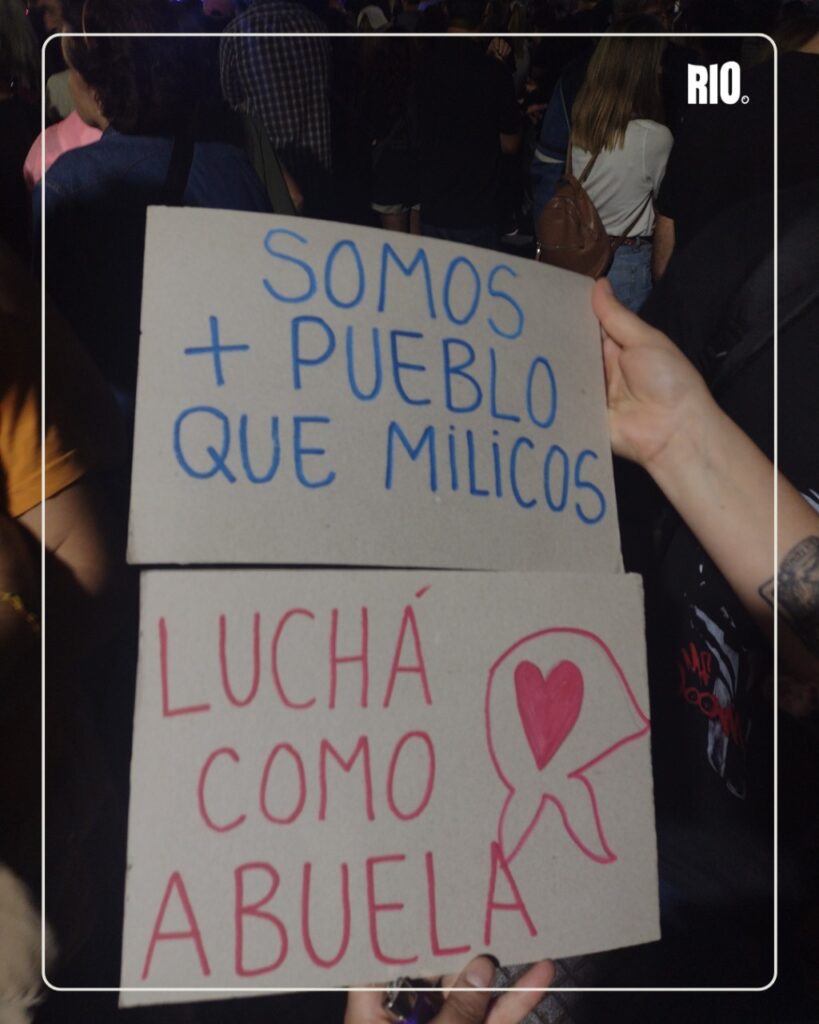 RIO.
SOMOS
+ PUEBLO
QUE MiLiCOS
LUCHÁ
COMO
ABUELA